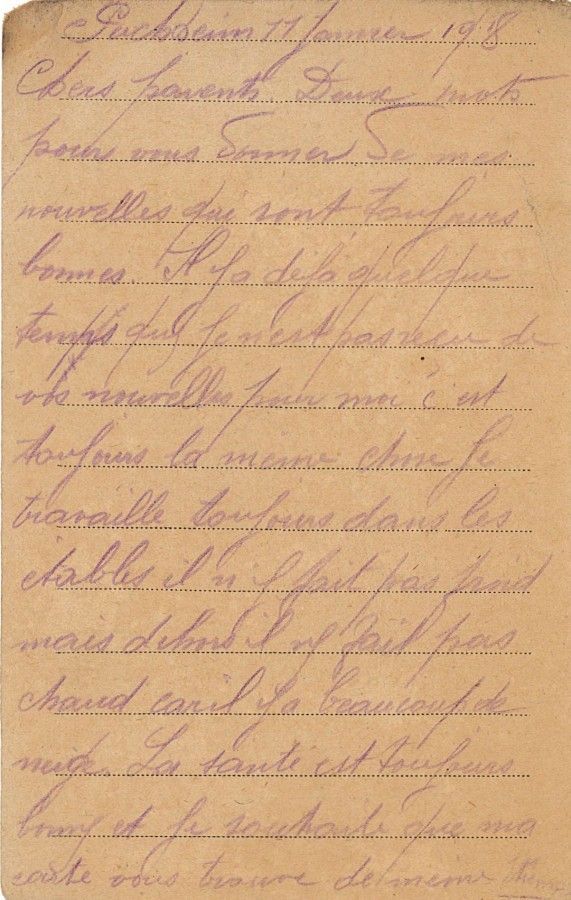 Puchheim 11 Janvier 1918
Chers parents. Deux mots
pour vous donner de mes
nouvelles qui sont toujours
bonnes. Il y a déjà quelque
temps que je n'est pas reçu de
vos nouvelles pour moi c'est
toujours la même chose je
travaille toujours dans les
étables il n'y fait pas froid
mais dehors il n'y fait pas
chaud car il y a beaucoup de
neige. La santé est toujours
bonne et je souhaite que ma
carte vous trouve de même